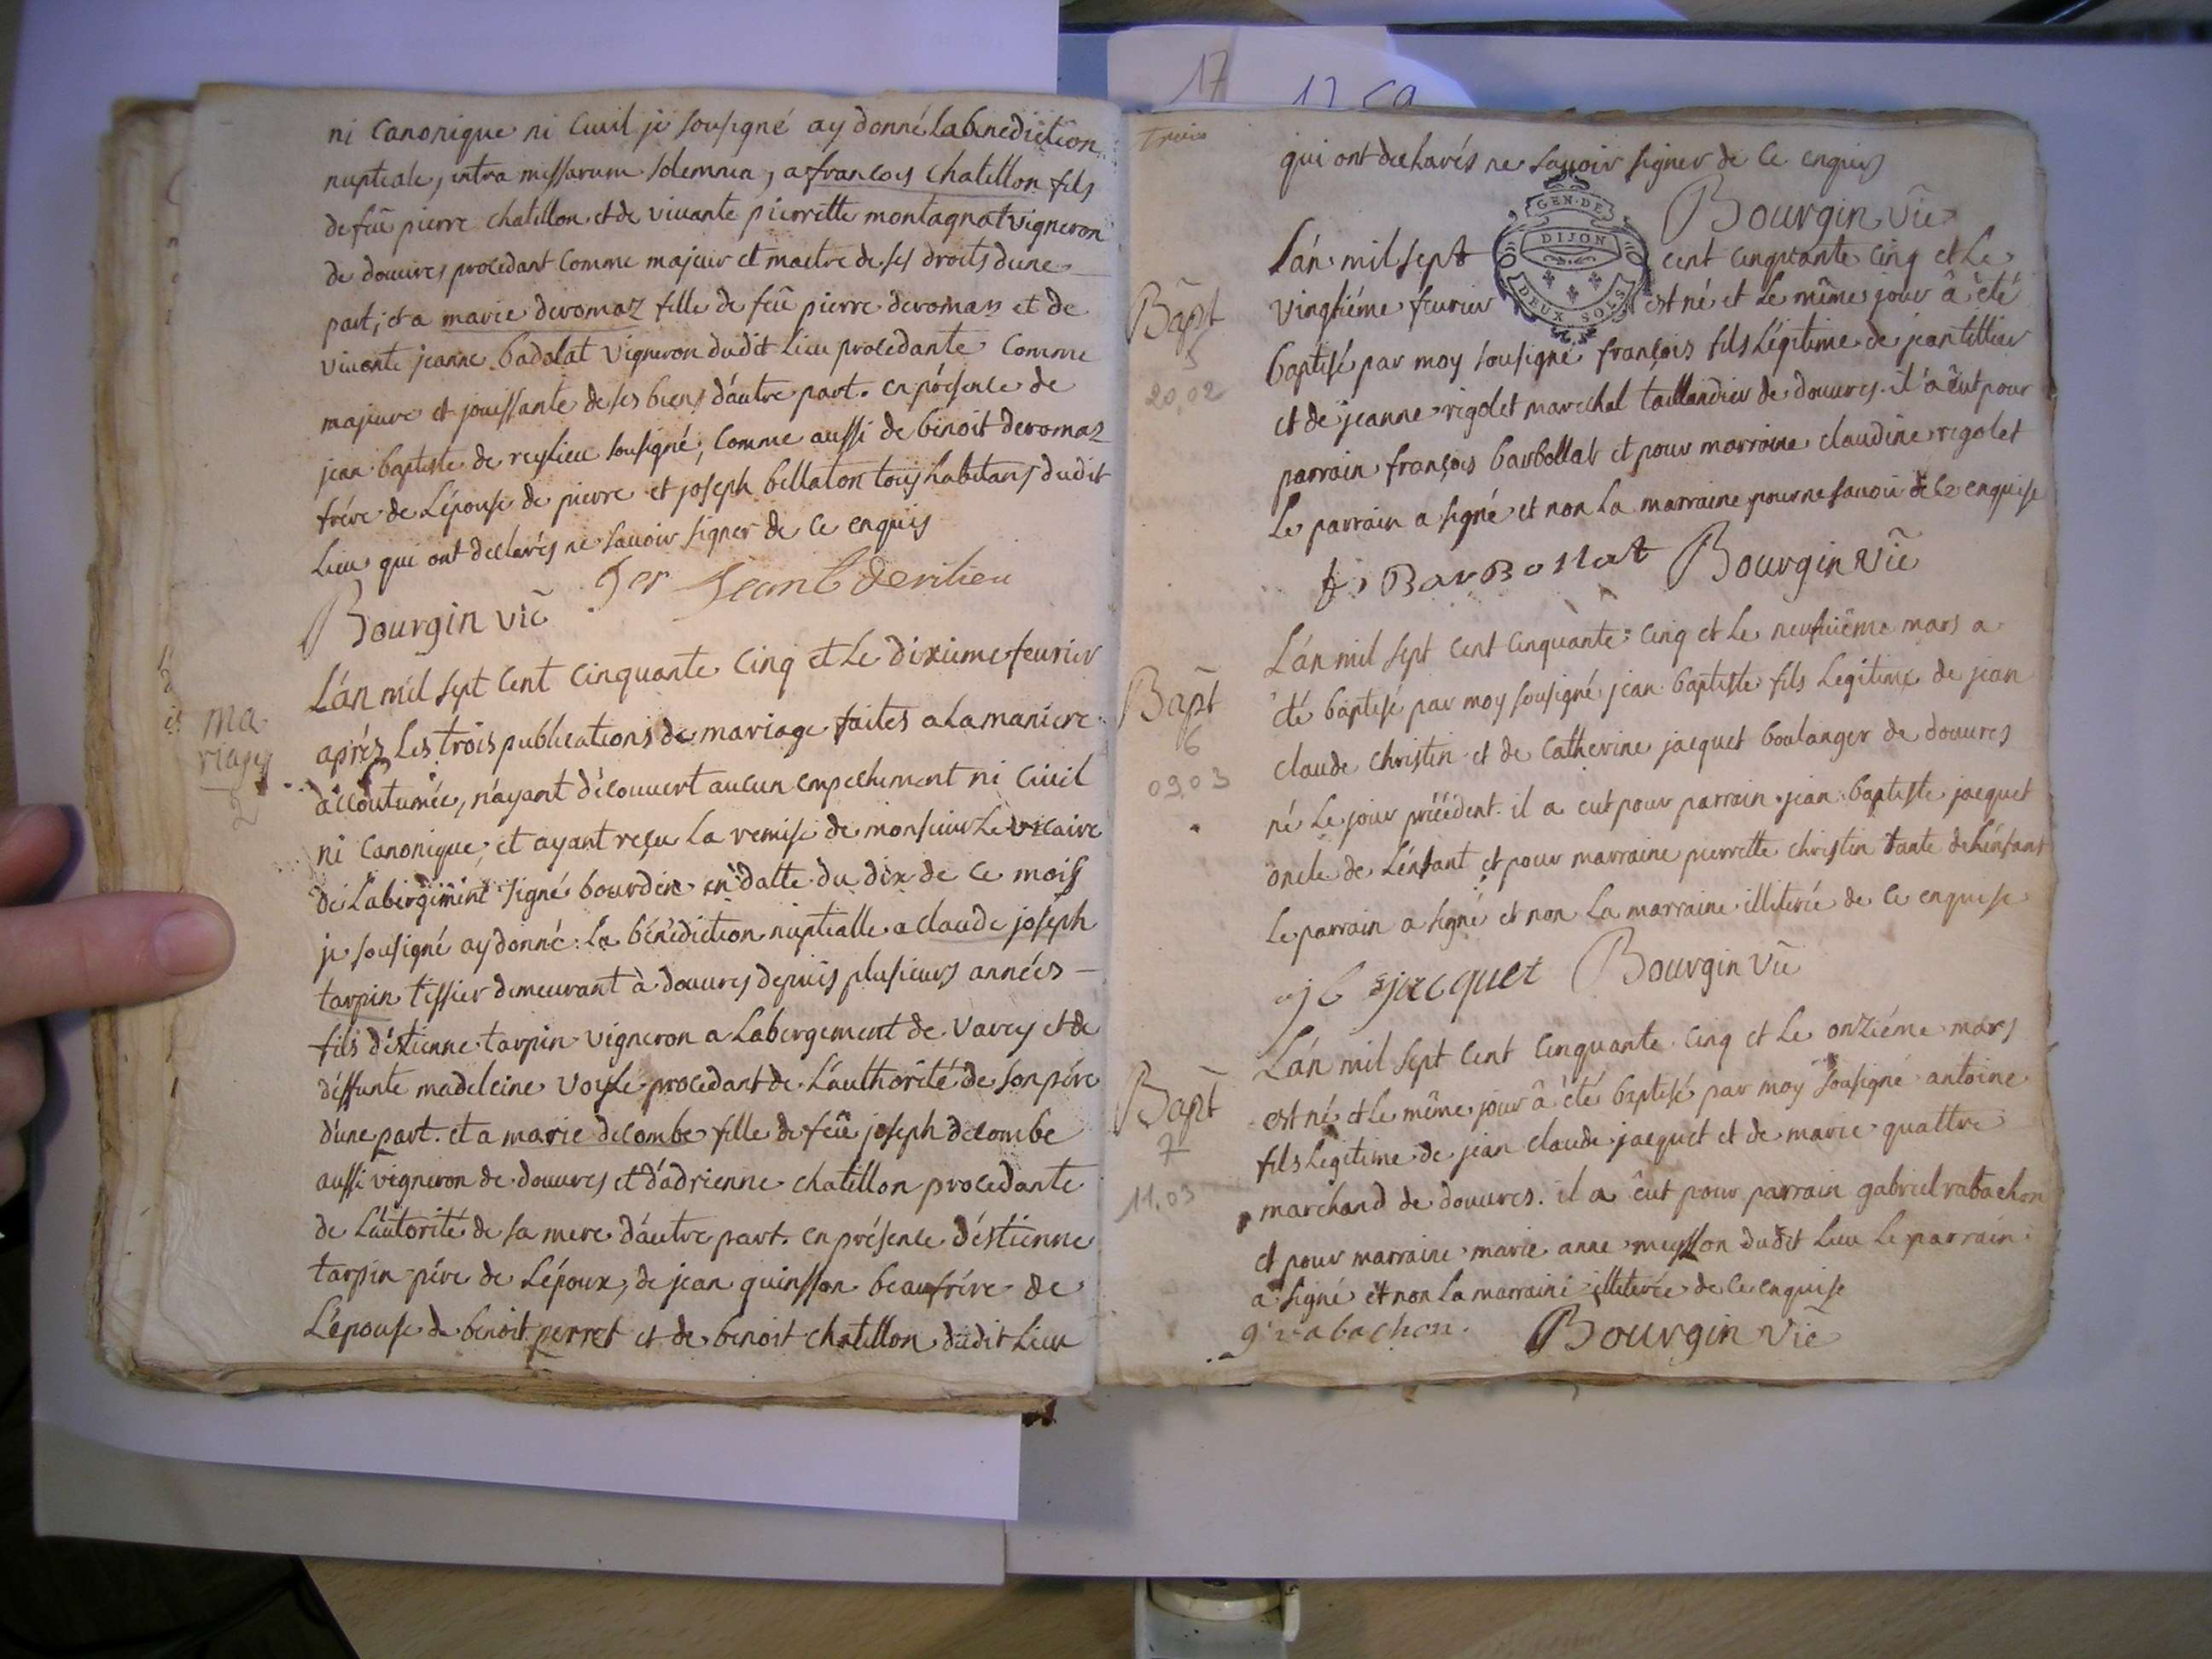 ni canonique ni Civil je sousigné ay donné la benediction
nuptiale, intra missarum solemnia, a françois chatillon fils
de feû pierre chatillon et de vivante pierrette montagnat vigneron
de douvres procedant comme majeur et maitre de ses droits d'une
part; et a marie deromaz fille de feû pierre deromaz et de
vivante jeanne badolat vigneron dudit lieu procedante comme
majeure et jouissante de ses biens d'autre part. en présence de
jean baptiste de reylieu sousigné, comme aussi de benoit deromaz
frére de L'épouse de pierre et joseph bellaton tous habitans dudit
Lieu qui ont declarés ne savoir signer de ce enquis
Bourgin vic
L'an mil sept cent cinquante cinq et Le dixieme feurier
aprés Les trois publications de mariage faites a La maniere
accoutumée, n'ayant découvert aucun empechement ni Civil
ni Canonique; et ayant reçu La remise de monsieur Le vicaire
de Labergement signé bourdin en datte du dix de ce mois
je sousigné ay donné La bénédiction nuptialle a claude joseph
tarpin tissier demeurant à douvres depuis plusieurs années
fils d'éstienne tarpin vigneron a Labergement de varey et de
déffunte madeleine procedant de L'authorité de son pére
d'une part. et a marie decombe fille de feû joseph decombe
aussi vigneron de douvres et d'adrienne chatillon procedante
de L'autorité de sa mere d'autre part. en présence d'éstienne
tarpin pére de L'époux, de jean quinsson beaufrére de
L'épouse de benoit perret et de benoit chatillon dudit Lieu
ma
riages
2
17
trois
qui ont declarés ne savoir signer de ce enquis
Bourgin vic
GEN. DE
DIJON
DEUX SOLS
Bapt
5
20,02
L'an mil sept cent cinquante cinq et Le
vingtiéme feurier est né et Le même jour â été
baptisé par moy sousigné françois fils Légitime de jean tillier
et de jeanne rigolet marechal taillandier de douvres. il a eut pour
parrain françois barbollat et pour marraine claudine rigolet
Le parrain a signé et non La marraine pour ne savoir de ce enquise
f. BarBollat Bourgin vic
Bapt
6
09,03
L'an mil sept cent cinquante cinq et Le neufuiême mars a
été baptisé par moy sousigné jean baptiste fils Legitime de jean
claude christin et de Catherine jacquet boulanger de douvres
né Le jour précédent. il a eut pour parrain jean baptiste jacquet
oncle de L'enfant et pour marraine pierrette christin tante de L'enfant
Le parrain a signé et non La marraine illiterée de ce enquise
j b jacquet Bourgin vic
Bapt
7
11,03
L'an mil sept cent cinquante cinq et Le onziéme mars
est né et Le même jour â été baptisé par moy sousigné antoine
fils Legitime de jean claude jacquet et de marie quattre
marchand de douvres. il a eut pour parrain gabriel rabachon
et pour marraine marie anne meysson dudit Lieu Le parrain
a signé et non La marraine illiterée de ce enquise
g rabachon. Bourgin vic